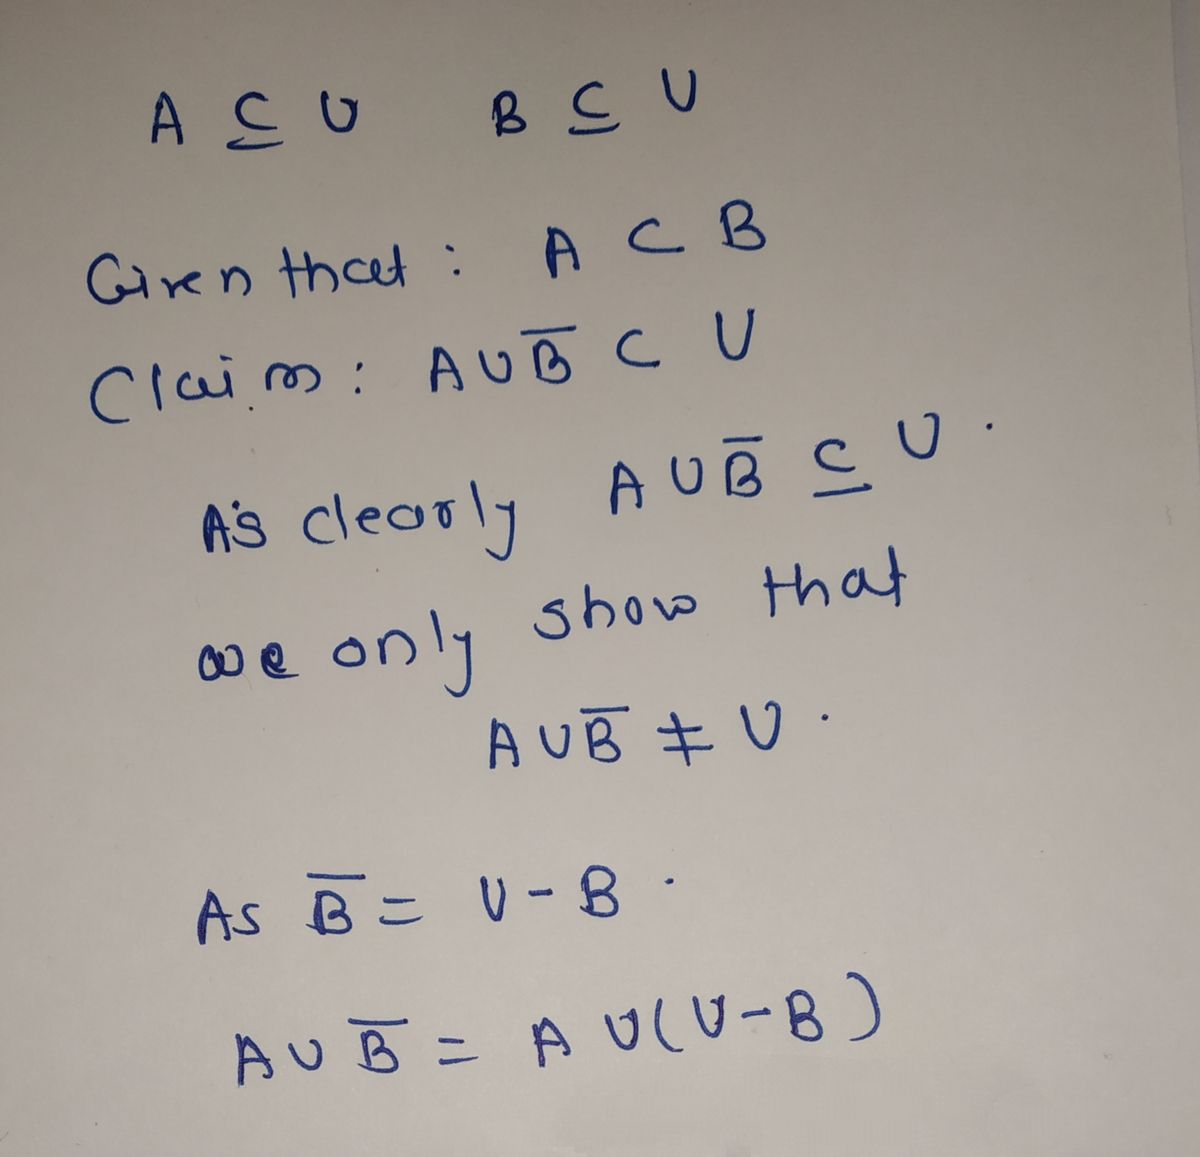 A ⊆ U B ⊆ U
Given that : A ⊂ B
Claim : A∪B̅ ⊂ U
As clearly A∪B̅ ⊆ U.
we only show that
A∪B̅ ≠ U.
As B̅ = U-B.
A∪B̅ = A∪(U-B)